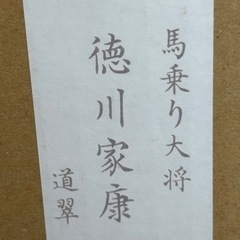 馬乗り大将
徳川家康
道翠